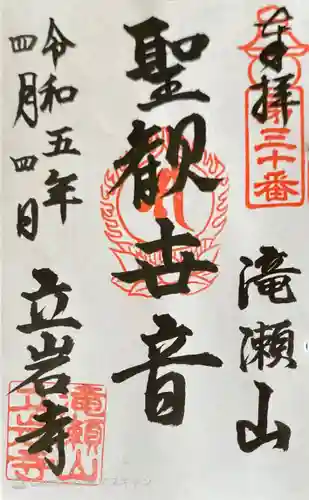 奉拝
第三十番
滝瀬山
聖観世音
令和五年
四月四日
立岩寺
滝瀬山
立岩寺